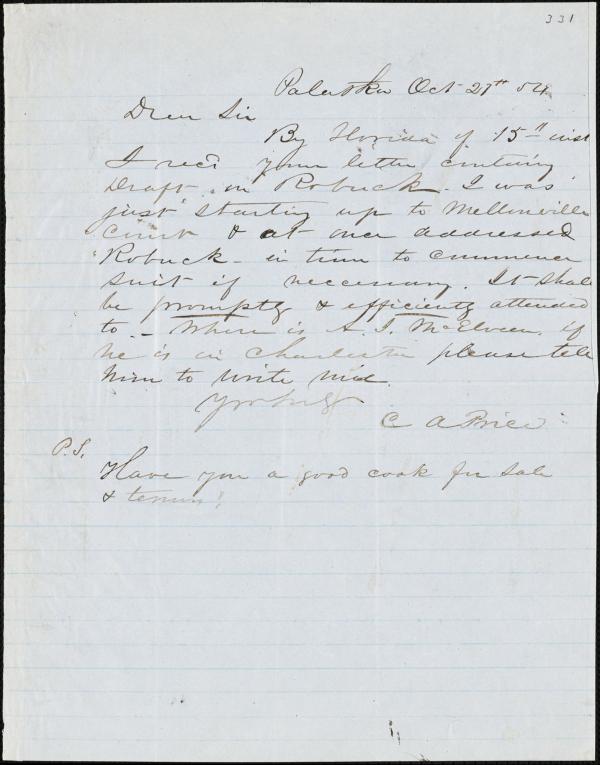 331
Palatka Oct 27th 54
Dear Sir
By Florida of 15th inst
I recd your letter containing
Draft on Roebuck. I was
just starting up to Mellonville
Court & at once addressed
Roebuck - in time to commence
suit if neccessary. It shall
be promptly & efficiently attended
to. - Where is A. J. McElveen. if
he is in Charleston please tell
him to write me.
C A Price
P.S.
Have you a good cook for sale
& terms?